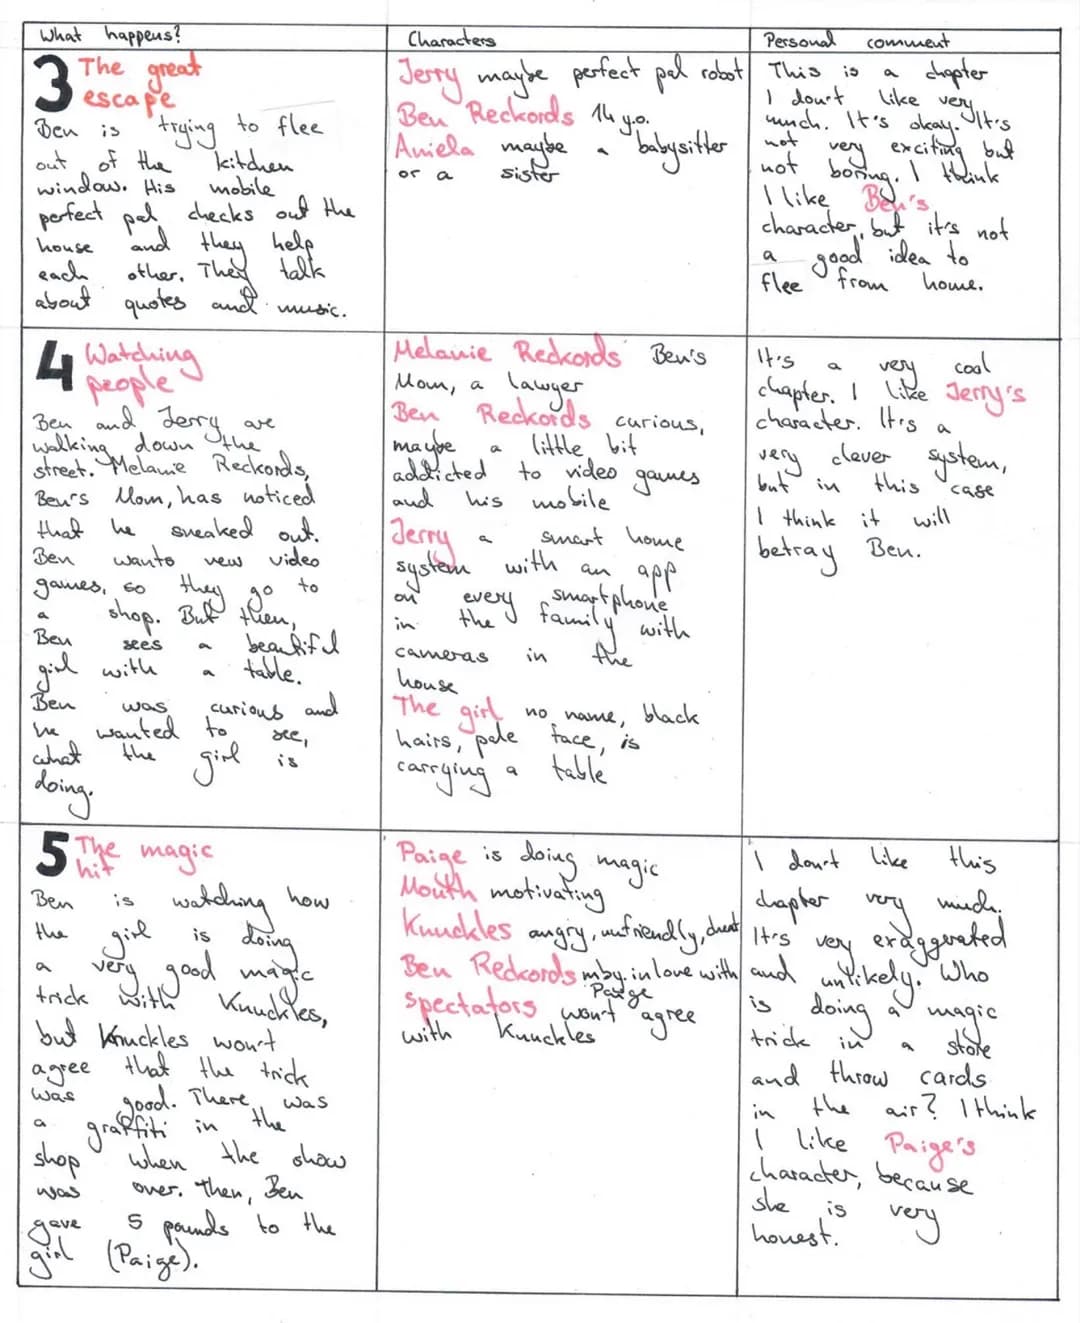 What happens?
Characters
Personal comment
3 The great
escape
Ben is trying to flee
out of the kitchen
window. His mobile
perfect pal checks out the
house and they help
each other. They talk
about quotes and music.
Jerry maybe perfect pal robot
Ben Reckords 14 y.o.
Aniela maybe a babysitter
or a sister
This is a chapter
I don't like very
much. It's okay. It's
not very exciting but
not boring. I think
I like Ben's
character, but it's not
a good idea to
flee from home.
4 Watching
people
Ben and Jerry are
walking down the
street. Melanie Reckords,
Ben's Mom, has noticed
that he sneaked out.
Ben wants new video
games, so they go to
a shop. But then,
Ben sees a beautiful
girl with a table.
Ben was curious and
he wanted to see,
what the girl is
doing.
Melanie Reckords Ben's
Mom, a lawyer
Ben Reckords curious,
maybe a little bit
addicted to video games
and his mobile
Jerry a smart home
system with an app
on every smartphone
in the family with
cameras in the
house
The girl no name, black
hairs, pale face, is
carrying a table
It's a very cool
chapter. I like Jerry's
character. It's a
very clever system,
but in this case
I think it will
betray Ben.
5 The magic
hit
Ben is watching how
the girl is doing
a very good magic
trick with Knuckles,
but Knuckles won't
agree that the trick
was good. There was
a graffiti in the
shop when the show
was over. Then, Ben
gave 5 pounds to the
girl (Paige).
Paige is doing magic
Mouth motivating
Knuckles angry, unfriendly,
Ben Reckords mby. in love with
Paige
spectators won't agree
with Knuckles
I don't like this
chapter very much.
It's very exaggerated
and unlikely. Who
is doing a magic
trick in a store
and throw cards
in the air? I think
I like Paige's
character, because
she is very
honest.